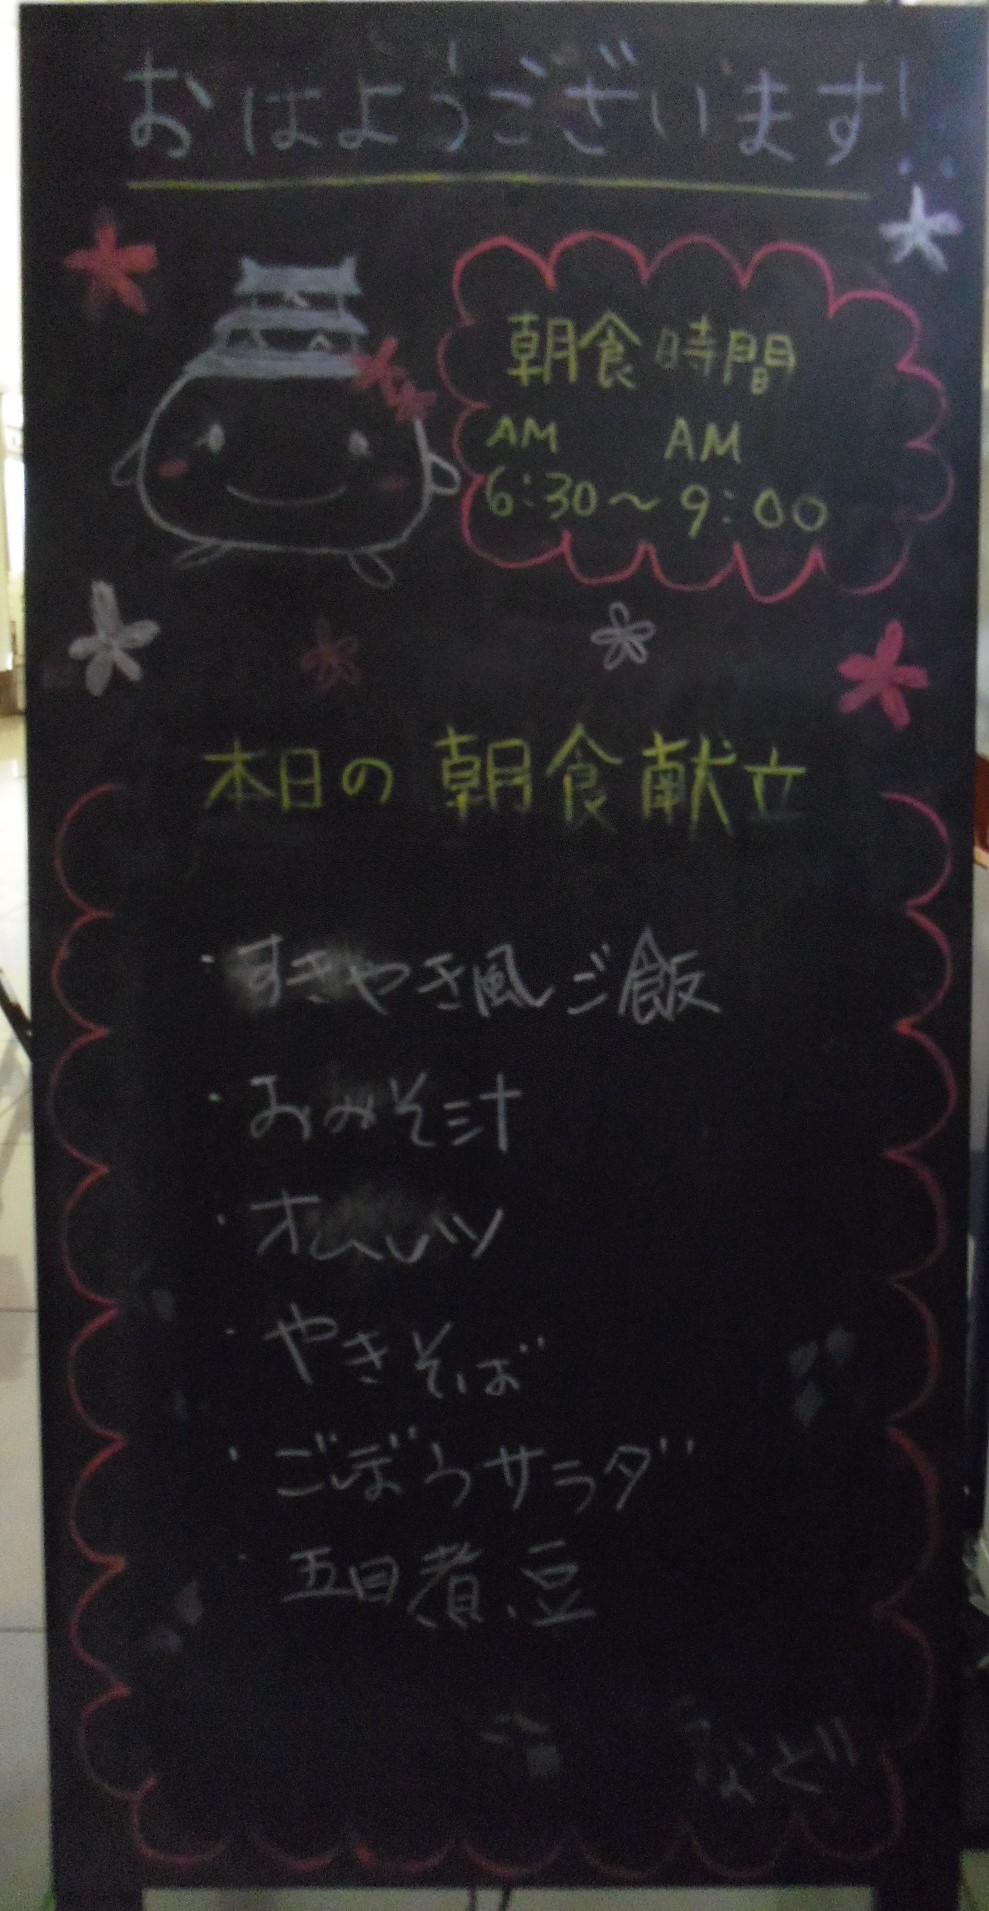 おはようございます!!
朝食時間
AM AM
6:30~9:00
本日の朝食献立
・すきやき風ご飯
・おみそ汁
・オムレツ
・やきそば
・ごぼうサラダ
・五目煮豆
など